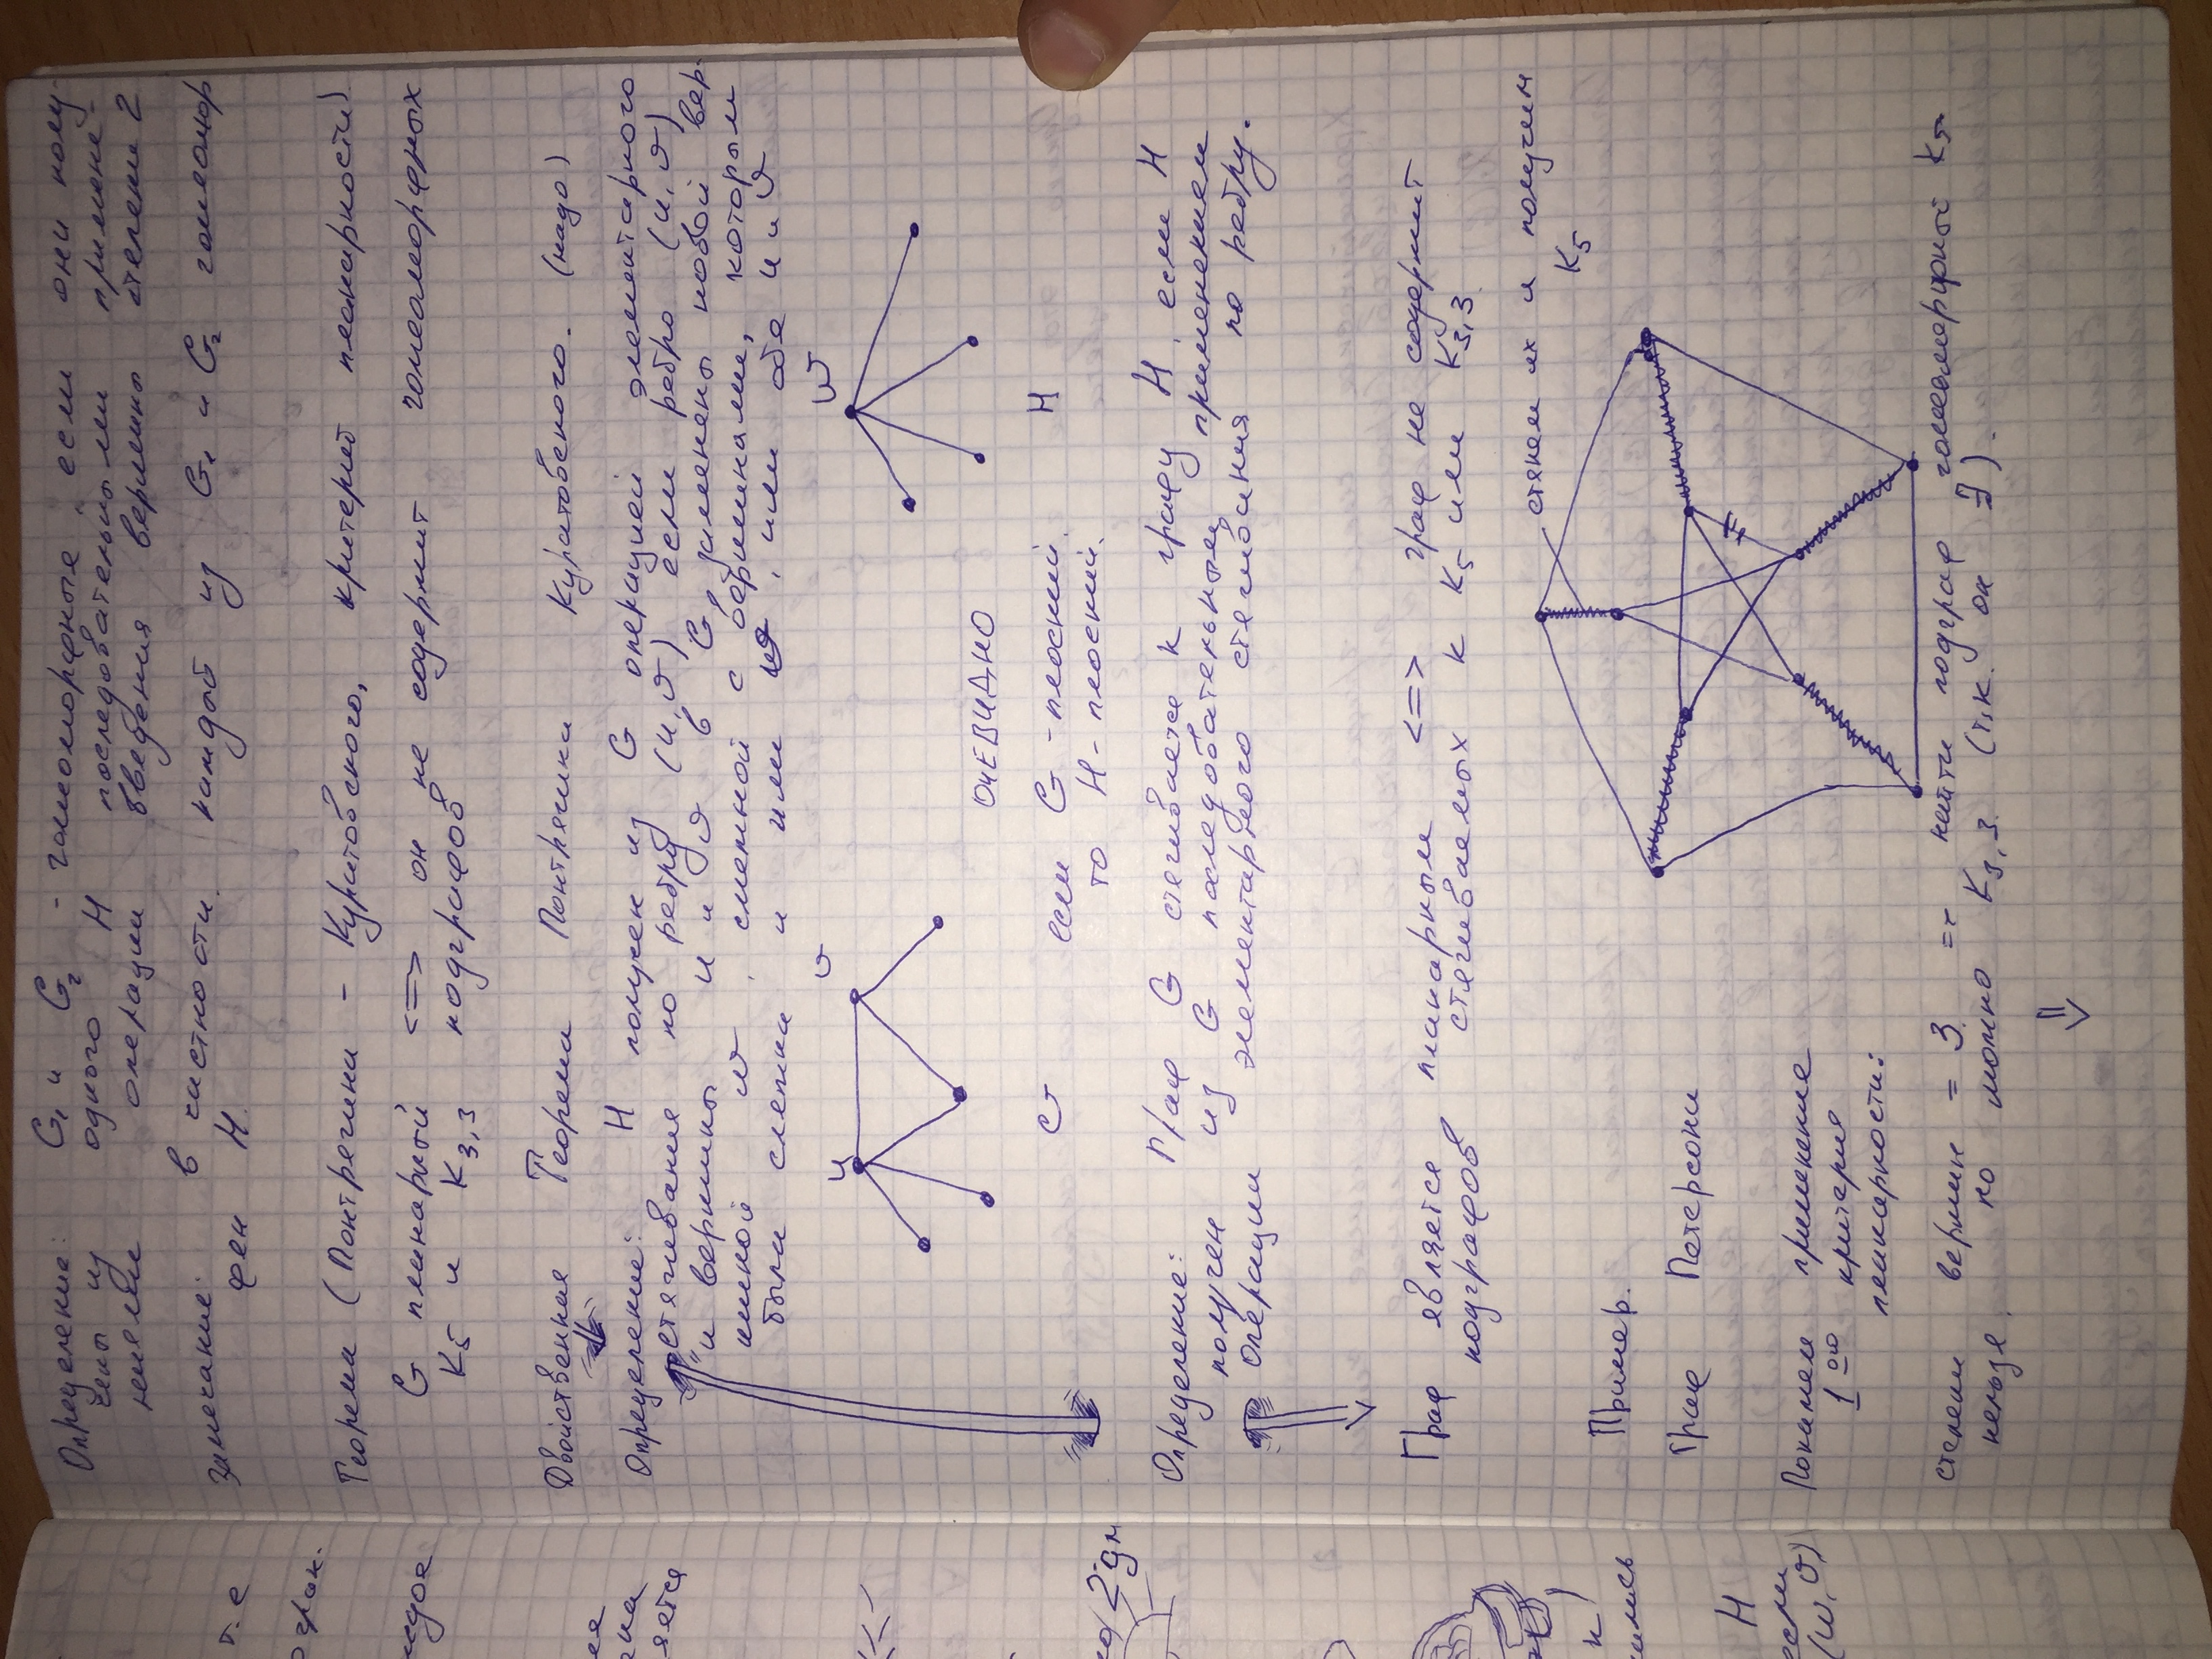 Определение: G₁ и G₂ - гомеоморфные, если они полу-
чены из одного H последовательными примене-
ниями операции введения вершины степени 2
Замечание: в частности, каждый из G₁ и G₂ гомеомор
фен H.
т.е
Теорема (Понтрягина - Куратовского, критерий планарности)
G планарный <=> он не содержит гомеоморфных
K₅ и K₃,₃ подграфов
Двойственная Теорема Понтрягина Куратовского. (надо)
Определение: H получен из G операцией элементарного
стягивание по ребру (u,v) если ребро (u,v)
и вершины u и v в G, заменены новой вер-
шиной w, смежной с вершинами, которым
были смежны u или v, или обе u и v
u v w
ОЧЕВИДНО
G если G - плоский, H
то H - плоский.
Определение: Граф G стягивается к графу H, если H
получен из G последовательным применением
операции элементарного стягивания по ребру.
Граф является планарным <=> граф не содержит
подграфов стягиваемых к K₅ или K₃,₃.
стянем их и получим
K₅
Пример.
Граф Петерсона
H
если
(w,v)
Покажем применение
1ого критерия
планарности:
степени вершин = 3. => найти подграф гомеоморфный K₅
нельзя, но можно K₃,₃. (т.к. он ∃).